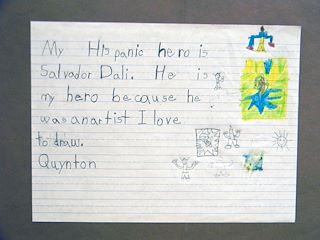 My Hispanic hero is
Salvador Dali. He is
my hero because he
was an artist I love
to draw.
Quynton